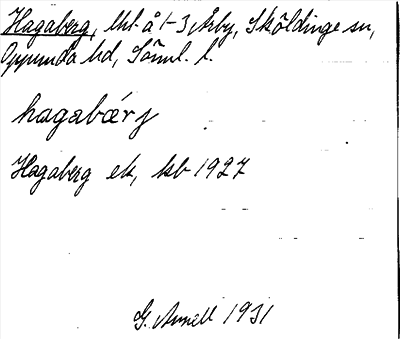 Hagaberg, lht å 1-3 Årby, Sköldinge sn,
Oppunda hd, Söml. l.
hagabærj
Hagaberg ek, kb 1927
G. Arnell 1931